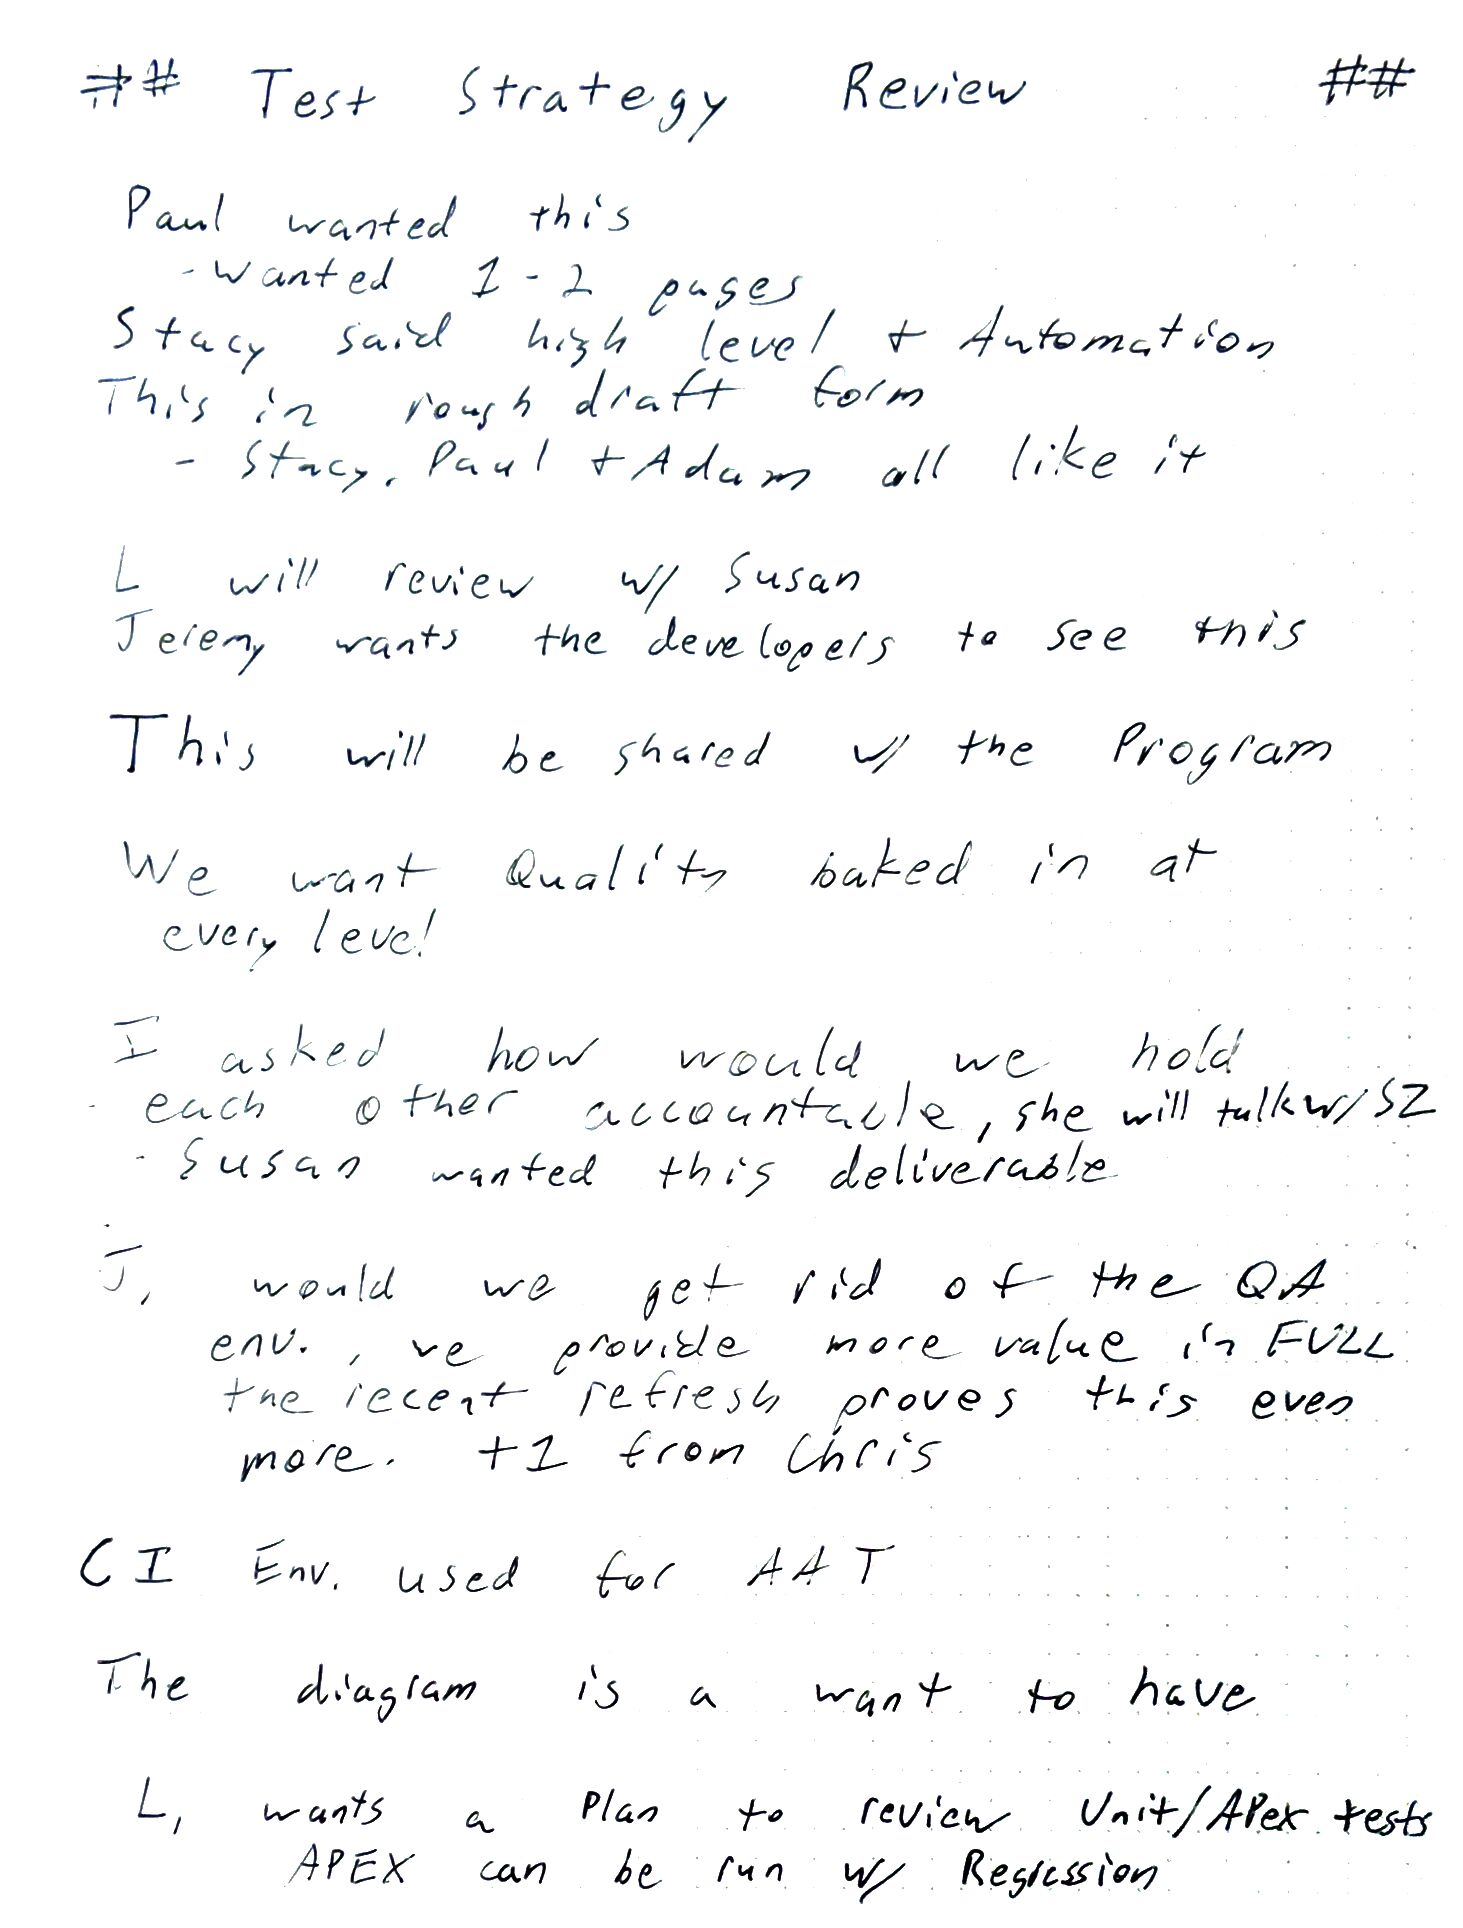 ## Test Strategy Review ##
Paul wanted this
- Wanted 1-2 pages
Stacy said high level + Automation
This in rough draft form
- Stacy, Paul + Adam all like it
L will review w/ Susan
Jeremy wants the developers to see this
This will be shared w/ the Program
We want Quality baked in at
every level
I asked how would we hold
each other accountable, she will talk w/ SZ
- Susan wanted this deliverable
J, would we get rid of the QA
env., we provide more value in FULL
the recent refresh proves this even
more. +1 from Chris
CI Env. used for AAT
The diagram is a want to have
L, wants a Plan to review Unit/APex tests
APEX can be run w/ Regression